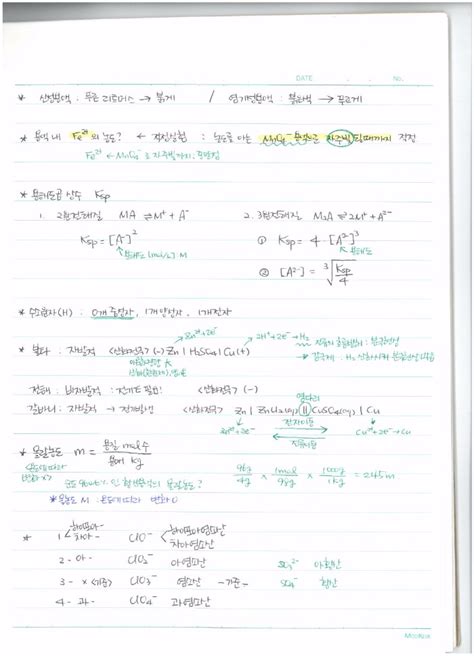 DATE . . NO.
* 산성용액 : 푸른 리트머스 → 붉게 / 염기성용액 : 붉은색 → 푸르게
* 용액 내 Fe²⁺의 농도? ← 적정실험 : 농도를 아는 MnO₄⁻ 용액으로 자주빛 될때까지 적정
Fe²⁺ ← MnO₄⁻로 자주빛까지
* 용해도곱 상수 Ksp
1. 2원전해질 MA ⇌ M⁺ + A⁻ 2. 3원전해질 M₂A ⇌ 2M⁺ + A²⁻
Ksp = [A⁻]² ① Ksp = 4·[A²⁻]³
용해도 (mol/L) : M 용해도
② [A²⁻] = ³√(Ksp/4)
* 수소원자(H) : 0개 중성자, 1개 양성자, 1개 전자
Zn²⁺+2e⁻ 2H⁺+2e⁻→H₂
* 볼타 : 자발적 <산화전극> (-) Zn | H₂SO₄ | Cu (+)
전해 : 비자발적 : 전기E 필요! <산화전극> (-)
갈바니 : 자발적 → 전기발생 <산화전극> Zn | ZnCl₂(aq) || CuSO₄(aq) | Cu
염다리
전자이동
Zn²⁺+2e⁻ Cu²⁺+2e⁻→Cu
* 몰랄농도 m = 용질 mol수 / 용매 kg
온도에따라 변화 X
96g/4g × 1mol/98g × 1000g/1kg = 245m
* 몰농도 M : 온도에 따라 변화 O
* 1 하이포아- 차아- ClO⁻ 하이포아염소산 차아염소산
2 - 아- ClO₂⁻ 아염소산 SO₃²⁻ 아황산
3 - × <기준> ClO₃⁻ 염소산 -기준- SO₄²⁻ 황산
4 - 과- ClO₄⁻ 과염소산